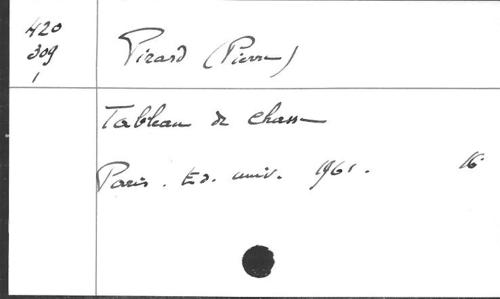 420
309
1
Pirard (Pierre)
Tableau de chasse
Paris. Ed. univ. 1961. 16°